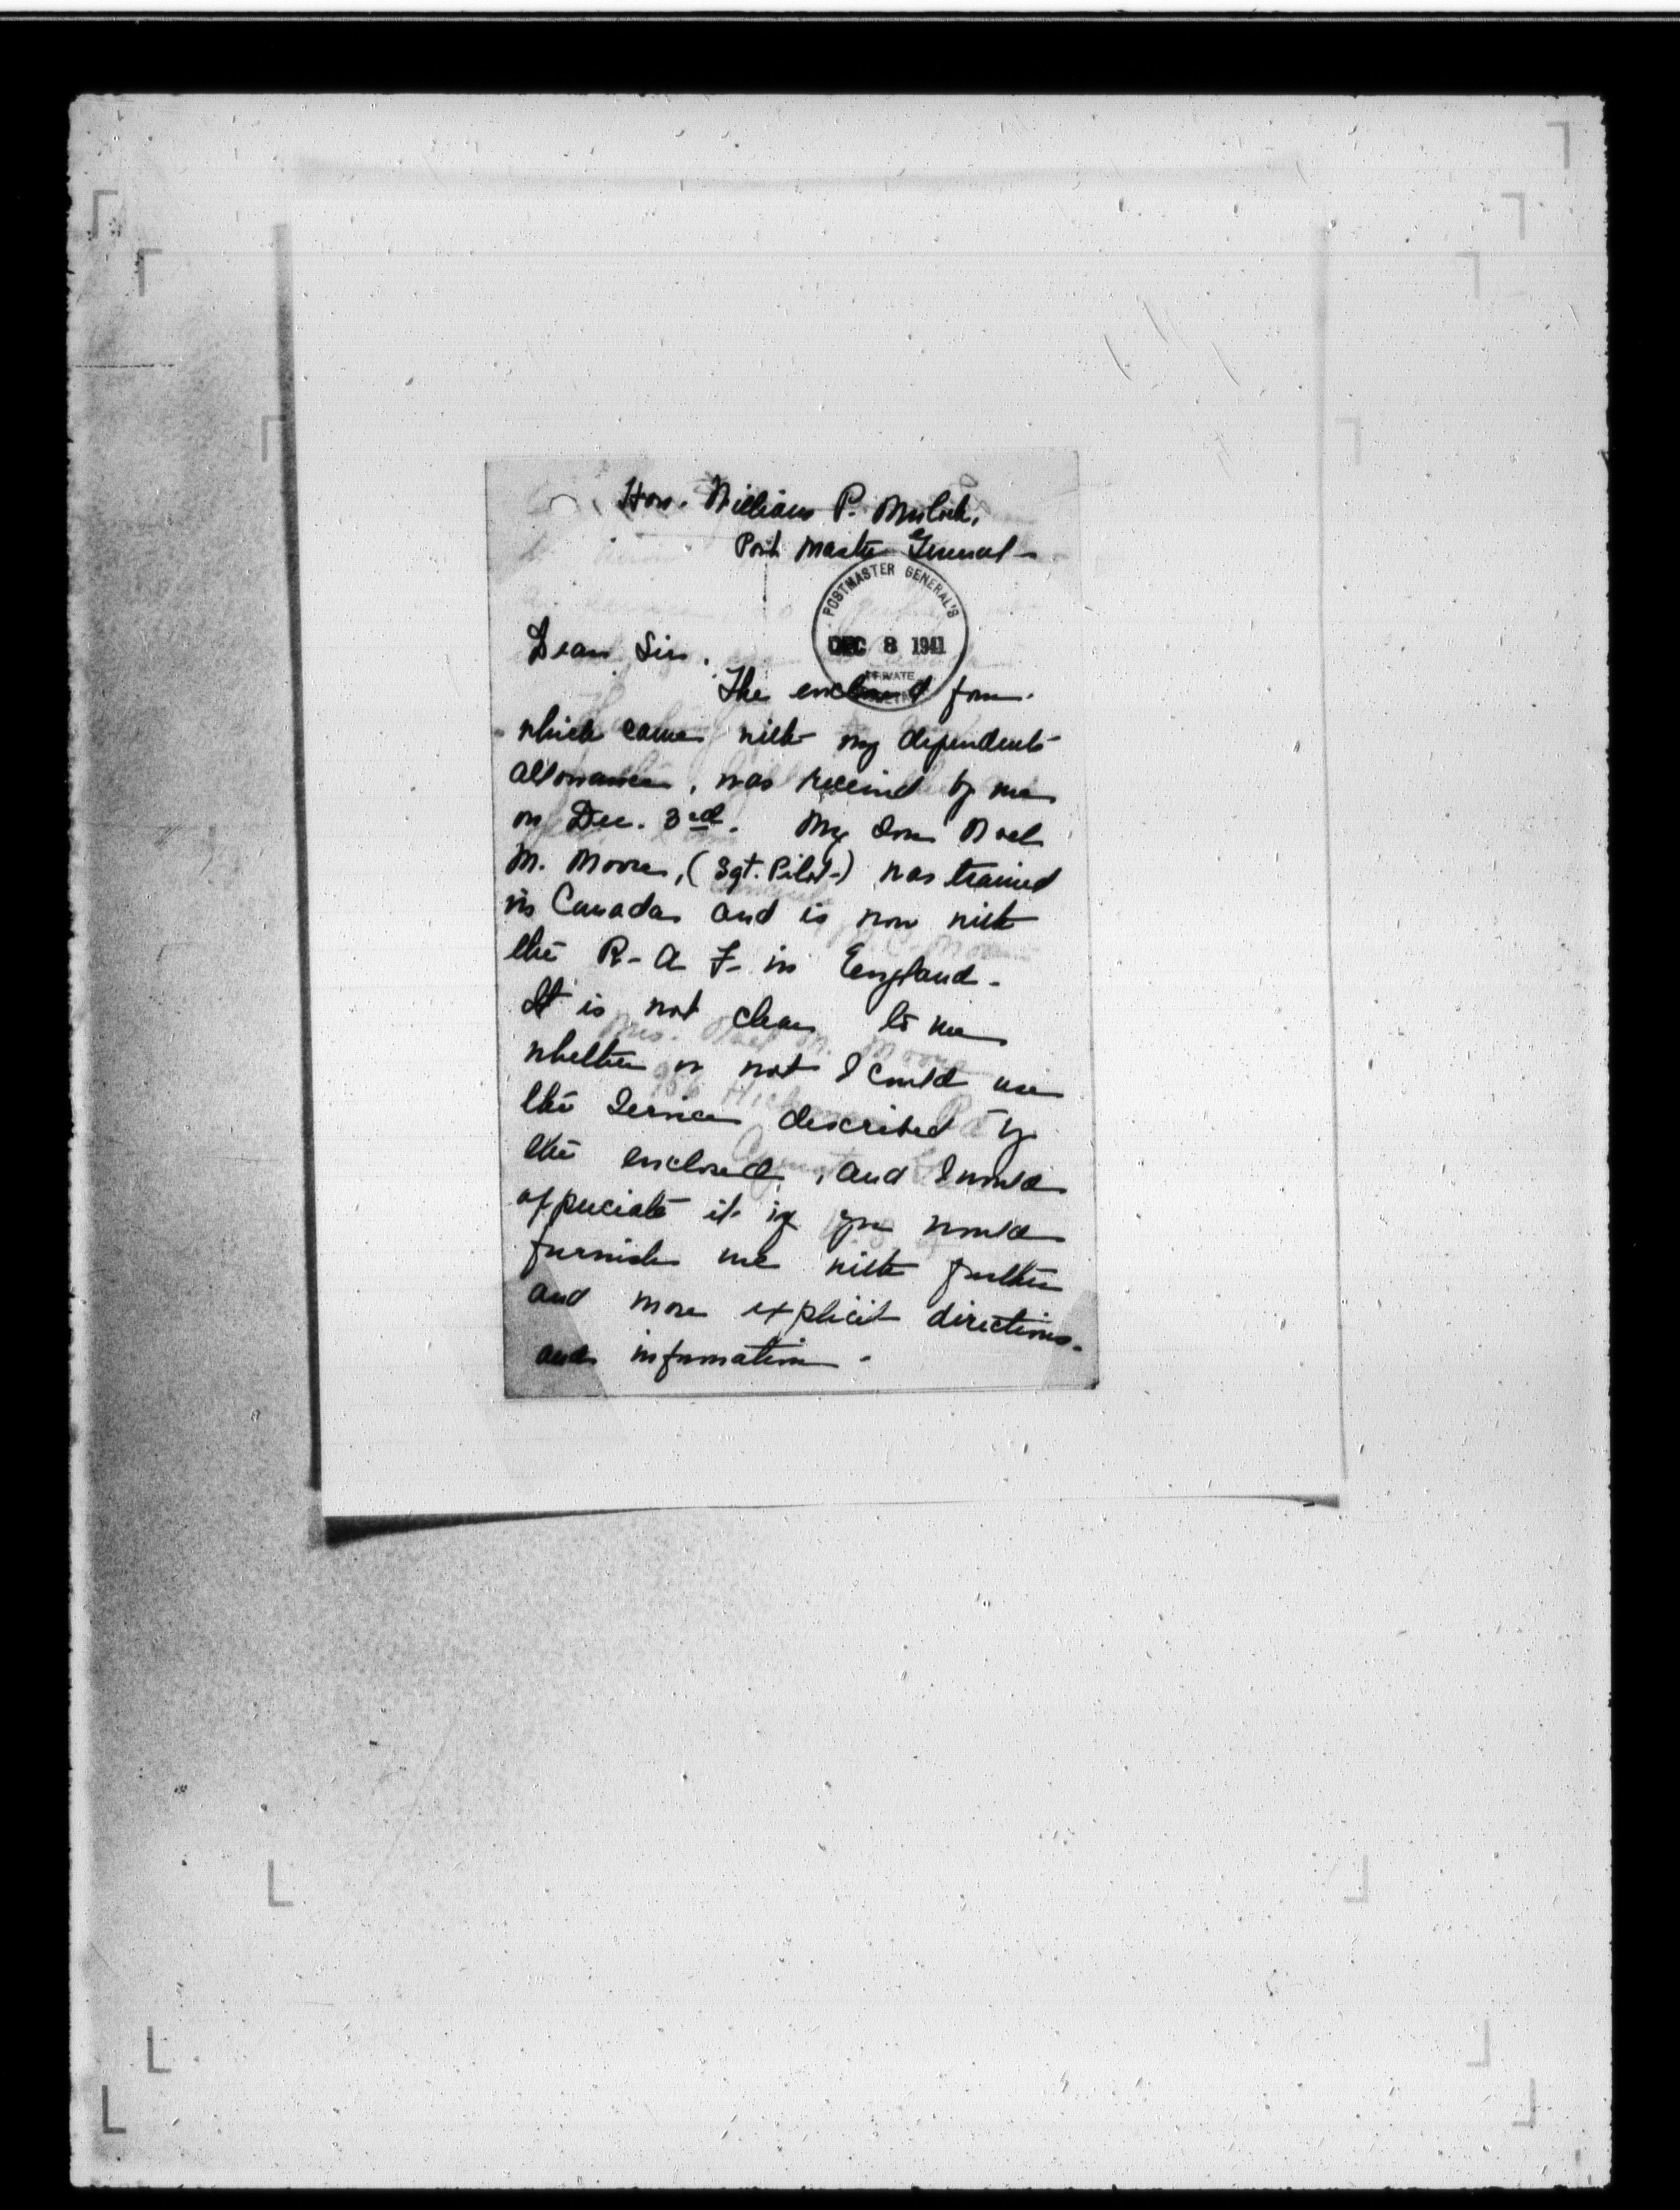 Hon. William P. Mulock,
Post Master General-
POSTMASTER GENERAL'S
DEC 8 1941
PRIVATE
Dear Sir.
The enclosed form
which came with my dependents
allowance, was received by me
on Dec. 3rd. My son Noel
M. Moore, (Sgt. Pilot-) was trained
in Canada and is now with
the R-A F- in England-
It is not clear to me
whether or not I could use
the service described by
the enclosed, and I would
appreciate it if you would
furnish me with further
and more explicit directions-
and information-